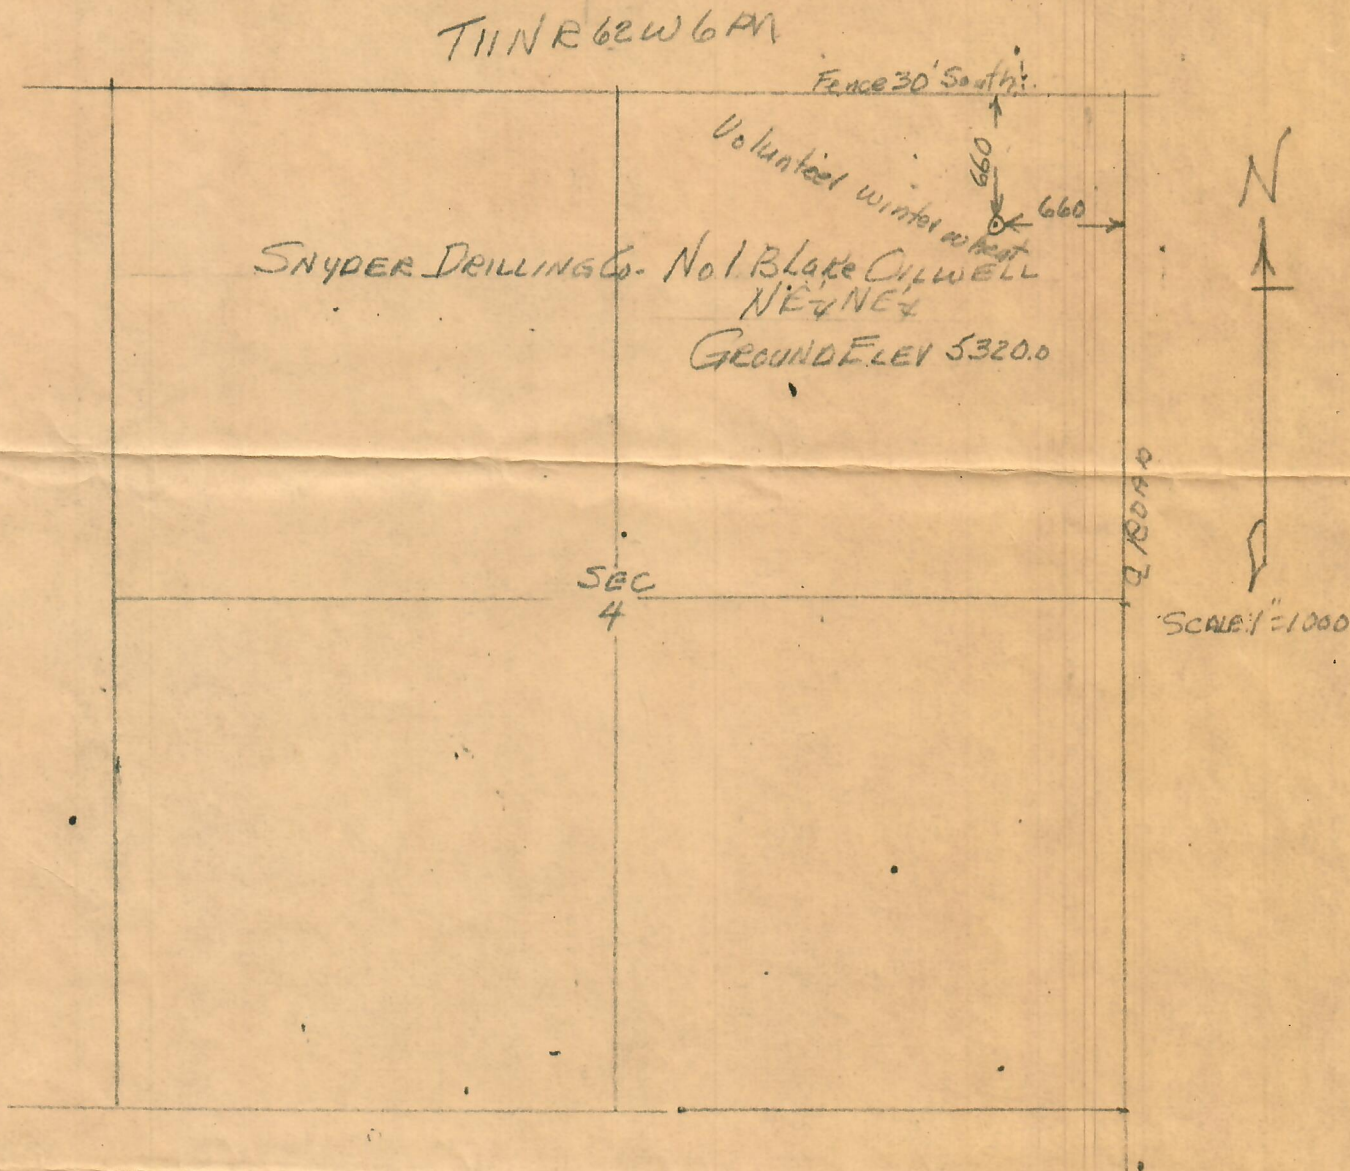 T11N R62W 6PM
Fence 30' South
Volunteer winter wheat
660
660
N
SNYDER DRILLING Co. No. 1 Blake OILWELL
NE¼ NE¼
GROUND ELEV 5320.0
ROAD
SEC
4
SCALE 1"=1000